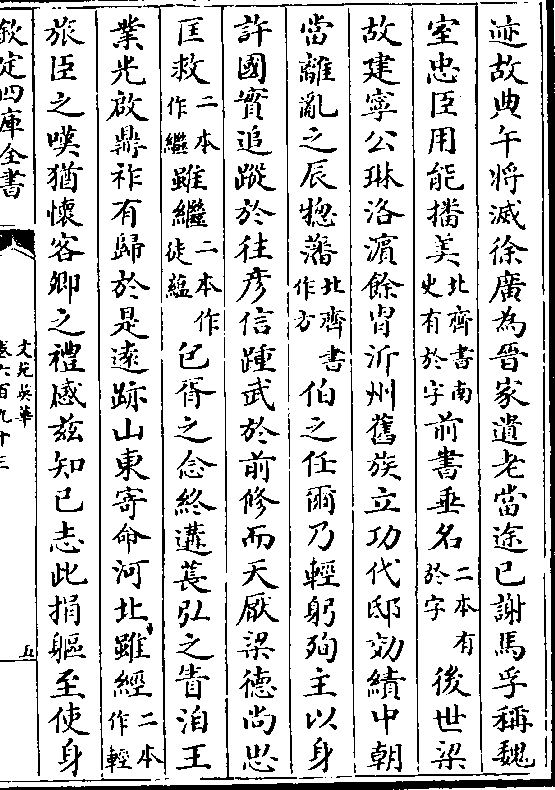 迹故典午将滅徐廣為晉家遺老當途已謝馬孚稱魏
室忠臣用能播美北齊書南史有於字前書垂名二本有於字後世梁
故建寧公琳洛濵餘胄沂州舊族立功代邸効績中朝
當離亂之辰揔藩北齊書作方伯之任爾乃輕躬殉主以身
許國實追蹤於往彦信踵武於前修而天厭梁德尚思
匡救二本作繼雖繼二本作徒蘊包胥之念終遘萇弘之眚洎王
業光啟鼎祚有歸於是逺跡山東寄命河北雖經二本作輕
旅臣之嘆猶懷客卿之禮感兹知已志此捐軀至使身
欽定四庫全書
文苑英華
卷六百九十三
五